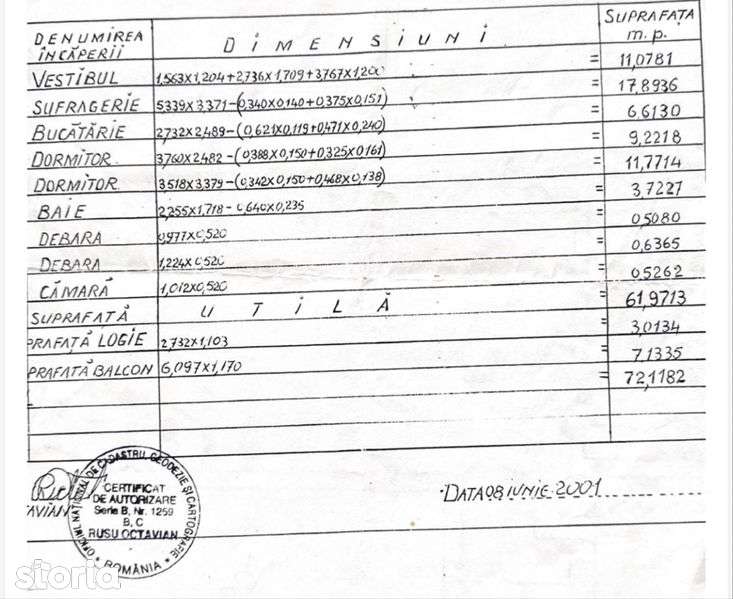 DENUMIREA ÎNCĂPERII DIMENSIUNI SUPRAFAȚA m.p.
VESTIBUL 1,563x1,204+2,736x1,709+3,767x1,200 = 11,0781
SUFRAGERIE 5,339x3,371-(0,340x0,140+0,375x0,151) = 17,8936
BUCĂTĂRIE 2,732x2,489-(0,621x0,119+0,471x0,240) = 6,6130
DORMITOR 3,760x2,482-(0,388x0,150+0,325x0,161) = 9,2218
DORMITOR 3,518x3,379-(0,342x0,150+0,468x0,138) = 11,7714
BAIE 2,255x1,718-0,640x0,235 = 3,7227
DEBARA 0,977x0,520 = 0,5080
DEBARA 1,224x0,520 = 0,6365
CĂMARĂ 1,012x0,520 = 0,5262
SUPRAFAȚĂ UTILĂ = 61,9713
PRAFAȚĂ LOGIE 2,732x1,103 = 3,0134
PRAFAȚĂ BALCON 6,097x1,170 = 7,1335
= 72,1182
TAVIAN
OFICIUL NAȚIONAL DE CADASTRU, GEODEZIE ȘI CARTOGRAFIE
CERTIFICAT
DE AUTORIZARE
Seria B, Nr. 1259
B, C
RUSU OCTAVIAN
ROMÂNIA
DATA 08 IUNIE 2001
storia